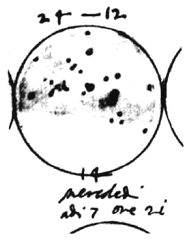 24 — 12
14
mercoledi
adi 7 ore 21